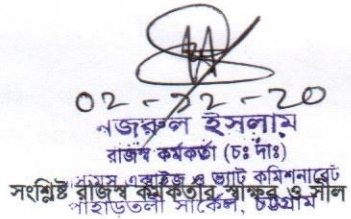 ০২-১২-২০
নজরুল ইসলাম
রাজস্ব কর্মকর্তা (চঃ দাঃ)
এক্সাইজ ও ভ্যাট কমিশনারেট
সংশ্লিষ্ট রাজস্ব কর্মকর্তার স্বাক্ষর ও সীল
পাহাড়তলী সার্কেল, চট্টগ্রাম